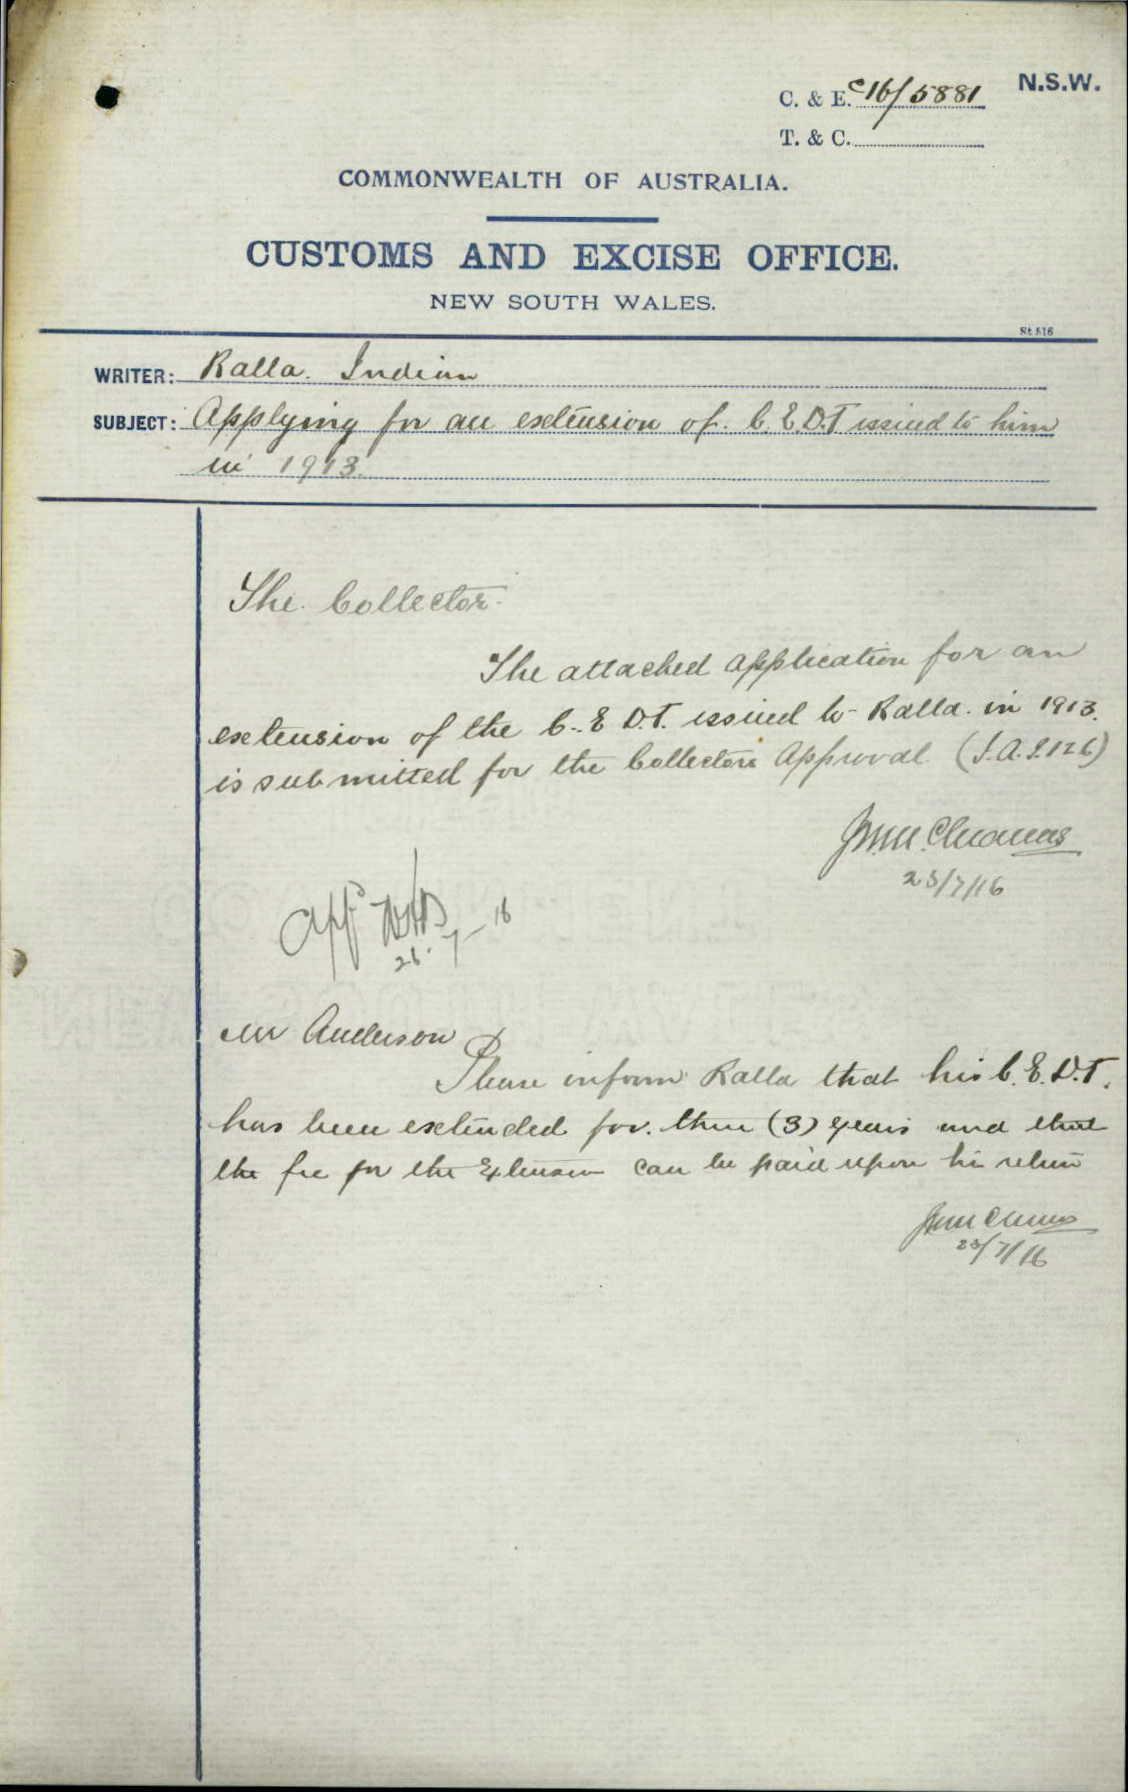 N.S.W.
C. & E. C16/5881
T. & C.
COMMONWEALTH OF AUSTRALIA.
CUSTOMS AND EXCISE OFFICE.
NEW SOUTH WALES.
St.516
WRITER: Ralla. Indian
SUBJECT: Applying for an extension of. C.E.D.T issued to him
in 1913.
The Collector.
The attached application for an
extension of the C.E.D.T. issued to Ralla. in 1913.
is submitted for the Collectors Approval (I.A.S.126)
23/7/16
App
26.7-16
Mr Anderson
Please inform Ralla that his C.E.D.T.
has been extended for. three (3) years and that
the fee for the Extension can be paid upon his return
/7/16